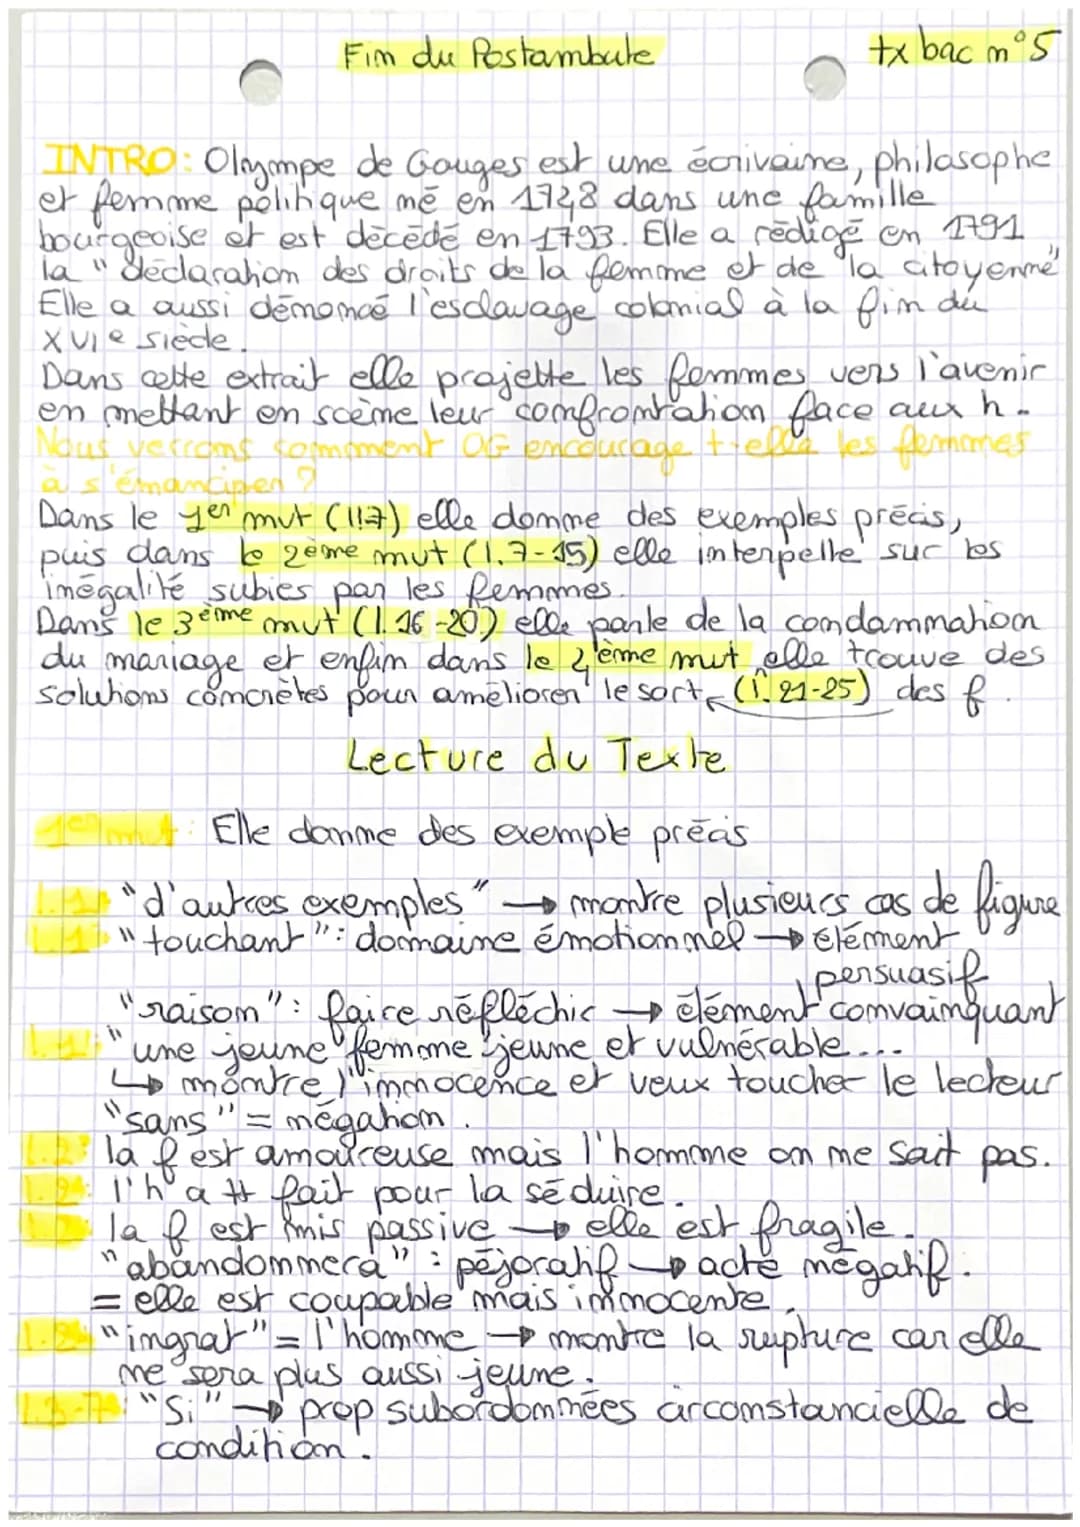 Fin du Postambule
tx bac n°5
INTRO: Olympe de Gouges est une écrivaine, philosophe
et femme politique né en 1748 dans une famille
bourgeoise et est décédé en 1793. Elle a rédigé en 1791
la "déclaration des droits de la femme et de la citoyenne"
Elle a aussi dénoncé l'esclavage colonial à la fin du
XVIe siècle.
Dans cette extrait elle projette les femmes vers l'avenir
en mettant en scène leur confrontation face aux h.
Nous verrons comment OG encourage t-elle les femmes
à s'émanciper ?
Dans le 1er mvt (l1.7) elle donne des exemples précis,
puis dans le 2ème mvt (l.7-15) elle interpelle sur les
inégalité subies par les femmes.
Dans le 3ème mvt (l.16-20) elle parle de la condamnation
du mariage et enfin dans le 4ème mvt elle trouve des
solutions concrètes pour améliorer le sort (l.21-25) des f.
Lecture du Texte
1er mvt: Elle donne des exemple précis
l.1: "d'autres exemples" → montre plusieurs cas de figure
l.1: "touchant": domaine émotionnel → élément
persuasif
"raison": faire réfléchir → élément convainquant
l.1: "une jeune femme": jeune et vulnérable...
↳ montre l'innocence et veux toucher le lecteur
"sans" = négation.
l.2: la f est amoureuse mais l'homme on ne sait pas.
l.2: l'h a tt fait pour la séduire.
l.2: la f est mis passive → elle est fragile.
"abandonnera": péjoratif → acte négatif.
= elle est coupable mais innocente.
l.2: "ingrat" = l'homme → montre la rupture car elle
ne sera plus aussi jeune.
l.3-7: "Si" → prop subordonnées circonstancielle de
condition.